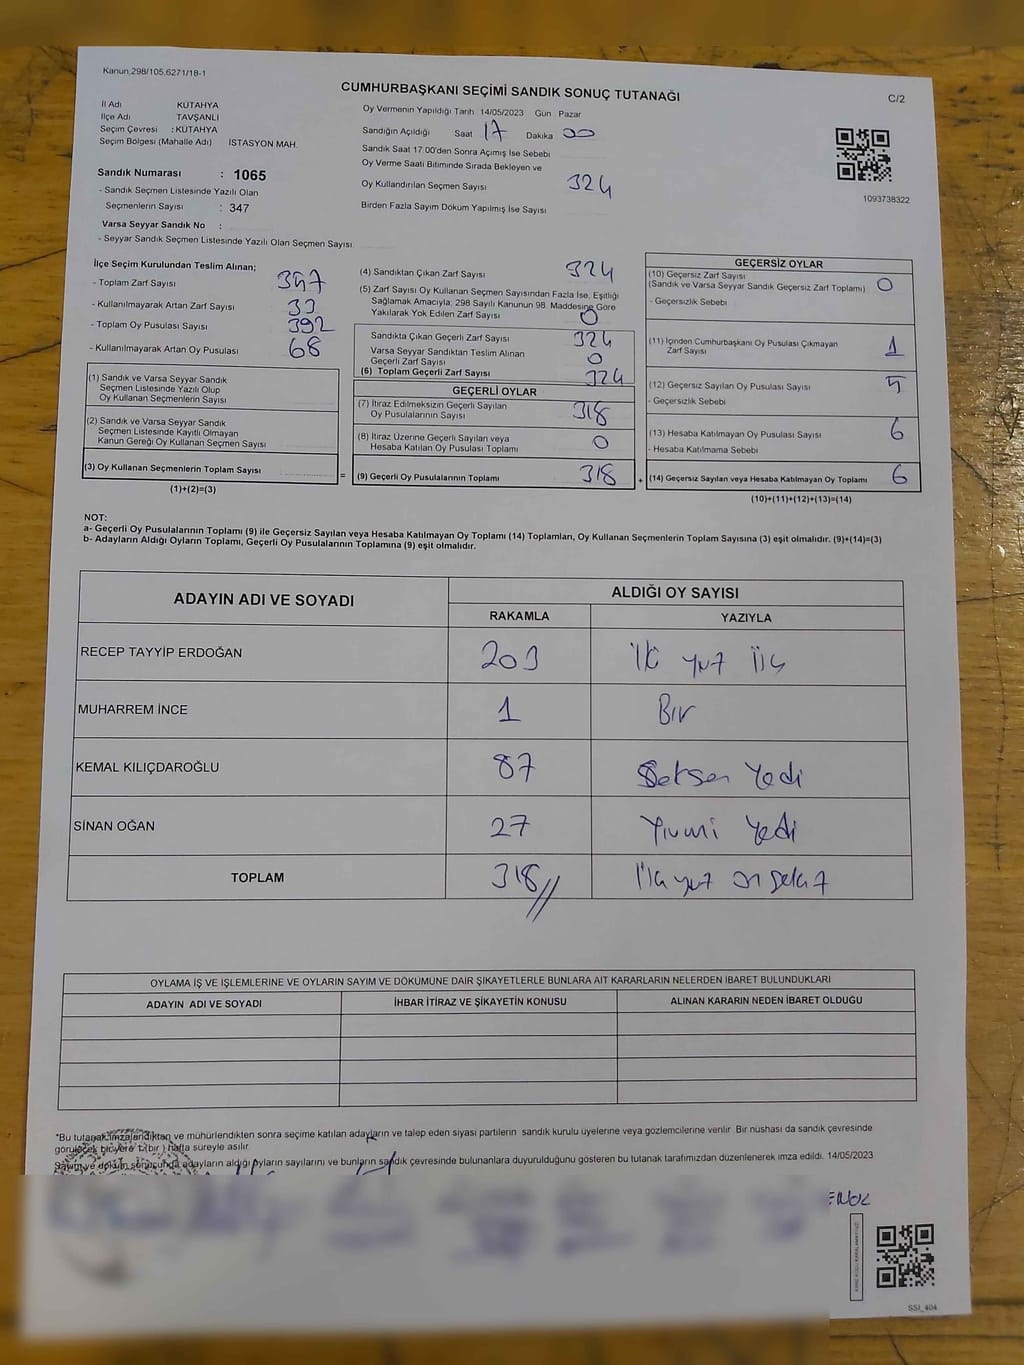 Kanun,298/105,6271/18-1
CUMHURBAŞKANI SEÇİMİ SANDIK SONUÇ TUTANAĞI
C/2
İl Adı KÜTAHYA
İlçe Adı TAVŞANLI
Seçim Çevresi : KÜTAHYA
Seçim Bölgesi (Mahalle Adı) İSTASYON MAH.
Oy Vermenin Yapıldığı Tarih 14/05/2023 Gün Pazar
Sandığın Açıldığı Saat 17 Dakika 00
Sandık Saat 17.00'den Sonra Açımış İse Sebebi
Oy Verme Saati Bitiminde Sırada Bekleyen ve
Oy Kullandırılan Seçmen Sayısı 324
Birden Fazla Sayım Döküm Yapılmış İse Sayısı
1093738322
Sandık Numarası : 1065
- Sandık Seçmen Listesinde Yazılı Olan
Seçmenlerin Sayısı : 347
Varsa Seyyar Sandık No :
- Seyyar Sandık Seçmen Listesinde Yazılı Olan Seçmen Sayısı
İlçe Seçim Kurulundan Teslim Alınan;
- Toplam Zarf Sayısı 357
- Kullanılmayarak Artan Zarf Sayısı 33
- Toplam Oy Pusulası Sayısı 392
- Kullanılmayarak Artan Oy Pusulası 68
(1) Sandık ve Varsa Seyyar Sandık
Seçmen Listesinde Yazılı Olup
Oy Kullanan Seçmenlerin Sayısı
(2) Sandık ve Varsa Seyyar Sandık
Seçmen Listesinde Kayıtlı Olmayan
Kanun Gereği Oy Kullanan Seçmen Sayısı
(3) Oy Kullanan Seçmenlerin Toplam Sayısı
(1)+(2)=(3)
(4) Sandıktan Çıkan Zarf Sayısı 324
(5) Zarf Sayısı Oy Kullanan Seçmen Sayısından Fazla İse, Eşitliği
Sağlamak Amacıyla; 298 Sayılı Kanunun 98. Maddesine Göre
Yakılarak Yok Edilen Zarf Sayısı 0
Sandıkta Çıkan Geçerli Zarf Sayısı 324
Varsa Seyyar Sandıktan Teslim Alınan
Geçerli Zarf Sayısı 0
(6) Toplam Geçerli Zarf Sayısı 324
GEÇERLİ OYLAR
(7) İtiraz Edilmeksizin Geçerli Sayılan
Oy Pusulalarının Sayısı 318
(8) İtiraz Üzerine Geçerli Sayılan veya
Hesaba Katılan Oy Pusulası Toplamı 0
= (9) Geçerli Oy Pusulalarının Toplamı 318
GEÇERSİZ OYLAR
(10) Geçersiz Zarf Sayısı
(Sandık ve Varsa Seyyar Sandık Geçersiz Zarf Toplamı) 0
- Geçersizlik Sebebi
(11) İçinden Cumhurbaşkanı Oy Pusulası Çıkmayan
Zarf Sayısı 1
(12) Geçersiz Sayılan Oy Pusulası Sayısı 5
- Geçersizlik Sebebi
(13) Hesaba Katılmayan Oy Pusulası Sayısı 6
- Hesaba Katılmama Sebebi
+ (14) Geçersiz Sayılan veya Hesaba Katılmayan Oy Toplamı 6
(10)+(11)+(12)+(13)=(14)
NOT:
a- Geçerli Oy Pusulalarının Toplamı (9) ile Geçersiz Sayılan veya Hesaba Katılmayan Oy Toplamı (14) Toplamları, Oy Kullanan Seçmenlerin Toplam Sayısına (3) eşit olmalıdır. (9)+(14)=(3)
b- Adayların Aldığı Oyların Toplamı, Geçerli Oy Pusulalarının Toplamına (9) eşit olmalıdır.
ADAYIN ADI VE SOYADI
ALDIĞI OY SAYISI
RAKAMLA YAZIYLA
RECEP TAYYİP ERDOĞAN 203 İki yuz üç
MUHARREM İNCE 1 Bir
KEMAL KILIÇDAROĞLU 87 Seksen Yedi
SİNAN OĞAN 27 Yirmi Yedi
TOPLAM 318 yuz on sekiz
OYLAMA İŞ VE İŞLEMLERİNE VE OYLARIN SAYIM VE DÖKÜMÜNE DAİR ŞİKAYETLERLE BUNLARA AİT KARARLARIN NELERDEN İBARET BULUNDUKLARI
ADAYIN ADI VE SOYADI İHBAR İTİRAZ VE ŞİKAYETİN KONUSU ALINAN KARARIN NEDEN İBARET OLDUĞU
*Bu tutanak imzalandıktan ve mühürlendikten sonra seçime katılan adayların ve talep eden siyasi partilerin sandık kurulu üyelerine veya gözlemcilerine verilir. Bir nüshası da sandık çevresinde
görülecek bir yere 1 (bir ) hafta süreyle asılır.
Sayım ve döküm sonucunda adayların aldığı oyların sayılarını ve bunların sandık çevresinde bulunanlara duyurulduğunu gösteren bu tutanak tarafımızdan düzenlenerek imza edildi. 14/05/2023
SSİ_404